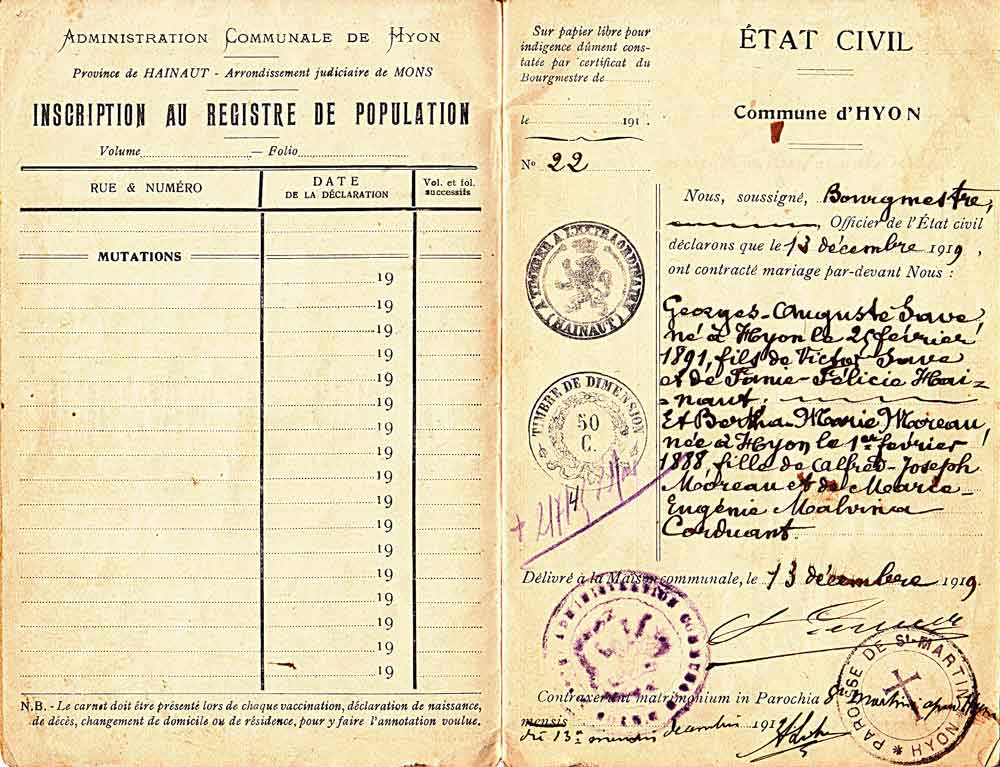 Administration Communale de Hyon
Province de HAINAUT - Arrondissement judiciaire de MONS
INSCRIPTION AU REGISTRE DE POPULATION
Volume — Folio
RUE & NUMÉRO
DATE DE LA DÉCLARATION
Vol. et fol. successifs
MUTATIONS
19
19
19
19
19
19
19
19
19
19
19
19
19
19
19
19
19
N.B. - Le carnet doit être présenté lors de chaque vaccination, déclaration de naissance,
de décès, changement de domicile ou de résidence, pour y faire l'annotation voulue.
Sur papier libre pour
indigence dûment cons-
tatée par certificat du
Bourgmestre de
le 191 .
N° 22
A TIMBRER A L'EXTRAORDINAIRE (HAINAUT)
TIMBRE DE DIMENSION
50
C.
ÉTAT CIVIL
Commune d'HYON
Nous, soussigné, Bourgmestre,
Officier de l'État civil
déclarons que le 13 décembre 1919,
ont contracté mariage par-devant Nous :
Georges-Auguste Save,
né à Hyon le 25 février
1891, fils de Victor Save
et de Fanie-Félicie Hai-
-naut.
Et Bertha-Marie Moreau,
née à Hyon le 1er fevrier
1888, fille de Alfred-Joseph
Moreau et de Marie-
Eugénie Malvina
Corduant.
Délivré à la Maison communale, le 13 décembre 1919.
ADMINISTRATION COMMUNALE
Contraxerunt matrimonium in Parochia Sti Martini apud Hyon
mensis
die 13a mensis decembris 191
PAROISSE DE St MARTIN HYON